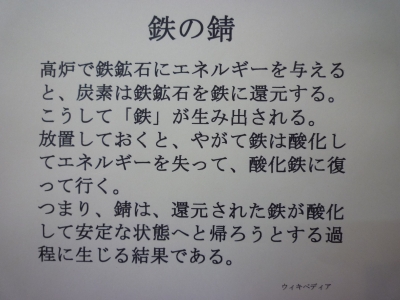 鉄の錆
高炉で鉄鉱石にエネルギーを与える
と、炭素は鉄鉱石を鉄に還元する。
こうして「鉄」が生み出される。
放置しておくと、やがて鉄は酸化し
てエネルギーを失って、酸化鉄に復
って行く。
つまり、錆は、還元された鉄が酸化
して安定な状態へと帰ろうとする過
程に生じる結果である。
ウィキペディア